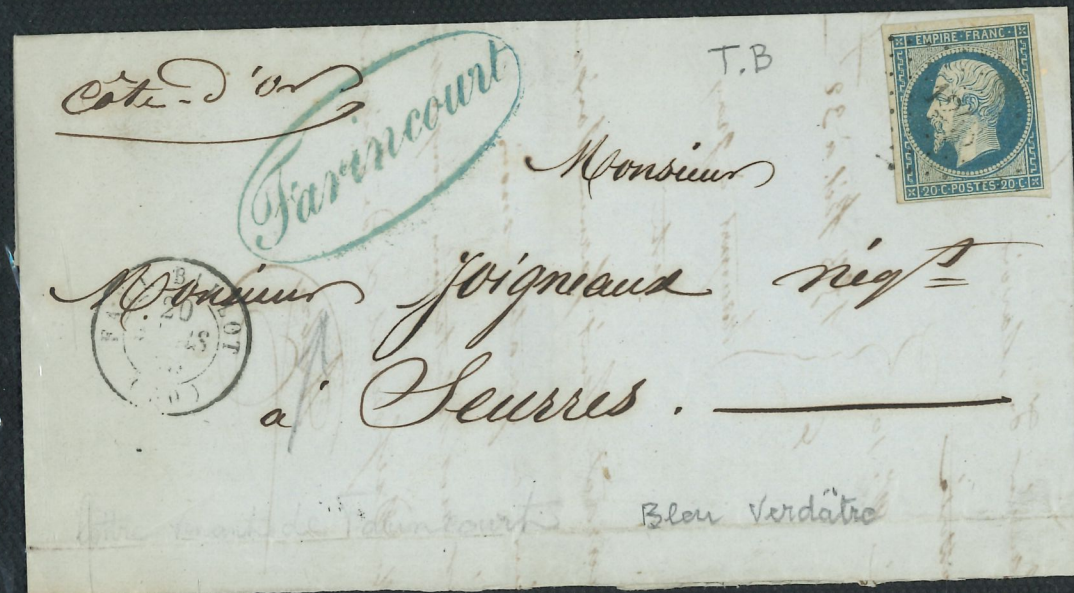 Côte-d'Or
Farincourt
T.B
EMPIRE·FRANC·
20·C·POSTES·20·C
Monsieur
Monsieur Joigneaux négt
20
à Seurres.
Bleu Verdâtre